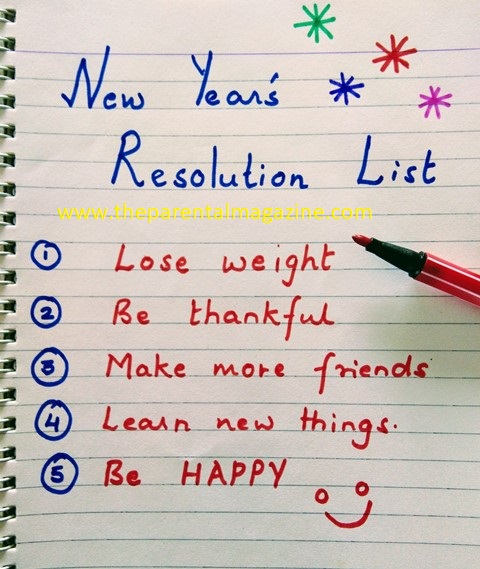 New Year's
Resolution List
www.theparentalmagazine.com
1 Lose weight
2 Be thankful
3 Make more friends
4 Learn new things.
5 Be HAPPY